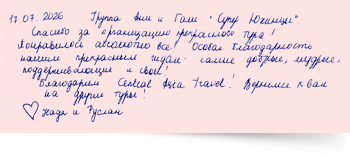 17.07.2026 Группа Ани и Гали "Супер Южинцы"
Спасибо за организацию прекрасного тура!
Понравилось абсолютно всё! Особая благодарность
нашим прекрасным гидам - самые добрые, мудрые,
поддерживающие и свои!
Благодарим Central Asia Travel! Вернемся к вам
на другие туры!
Надя и Руслан